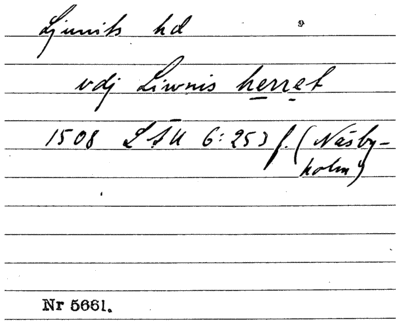 Ljunits hd
vdj Liwnis herret
1508 LÄU 6:253 f. (Näsby-
holm)
Nr 5661.